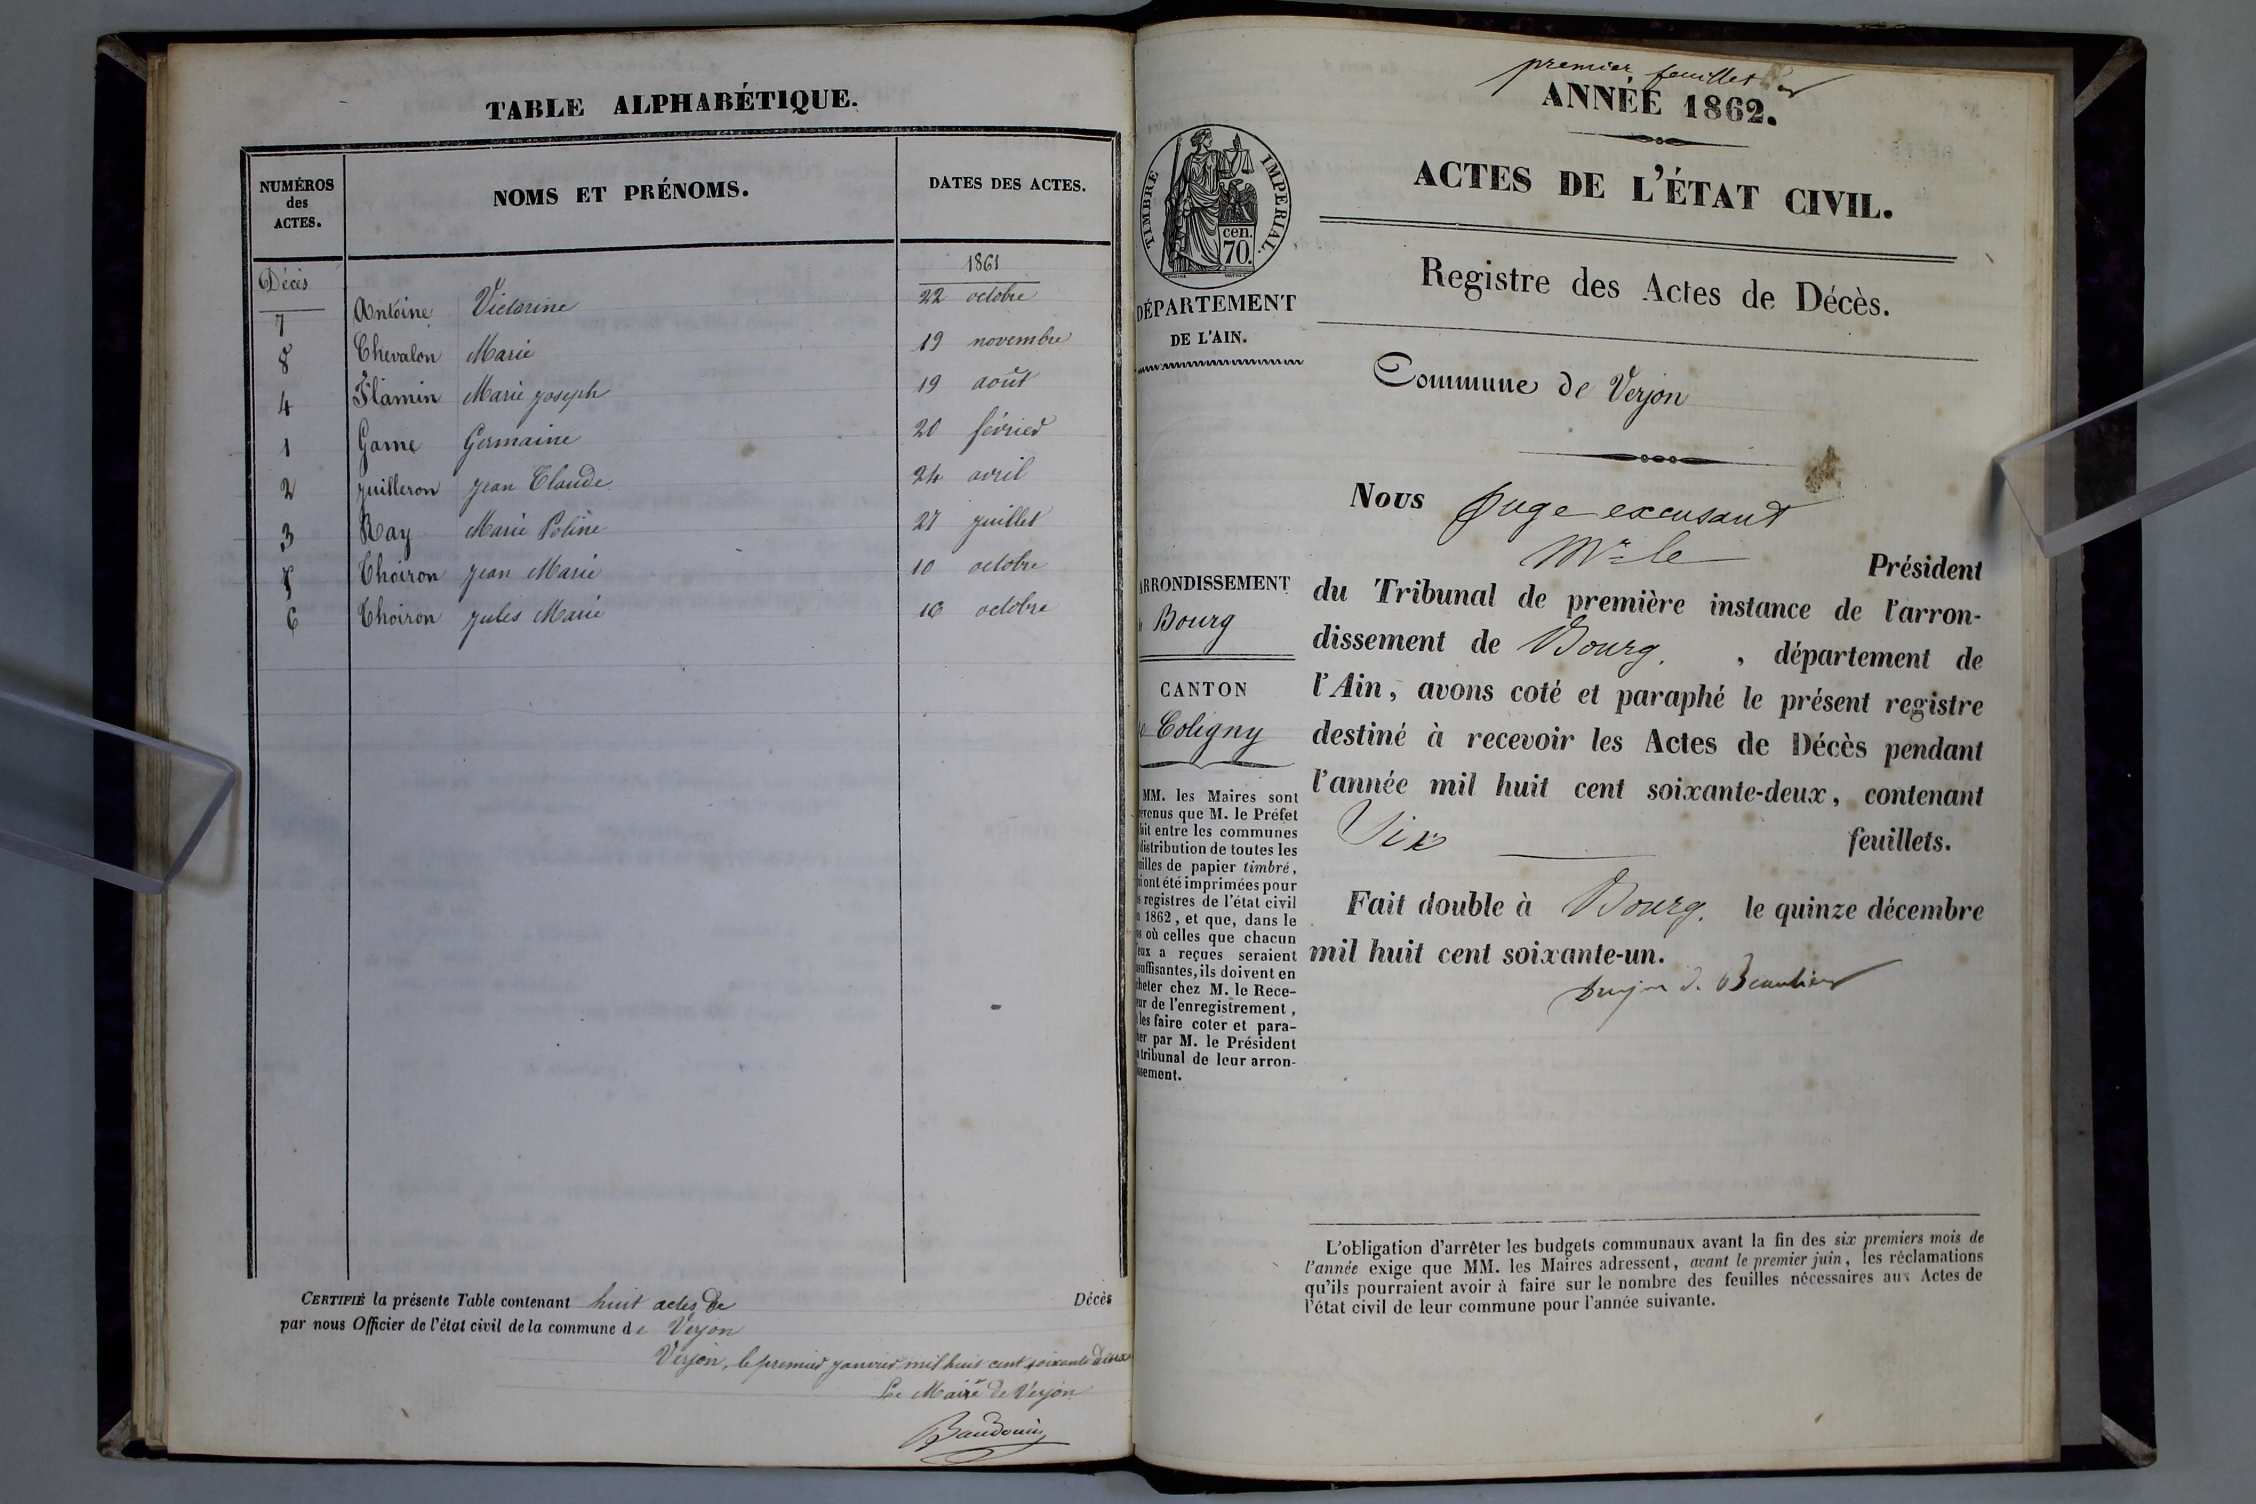 TABLE ALPHABÉTIQUE.
NUMÉROS des ACTES.
NOMS ET PRÉNOMS.
DATES DES ACTES.
Décès
1861
7 Antoine Victorine 22 octobre
8 Chevalon Marie 19 novembre
4 Flamin Marie joseph 19 août
1 Game Germaine 20 février
2 juilleron jean Claude 24 avril
3 Ray Marie Poline 27 juillet
5 Choiron jean Marie 10 octobre
6 Choiron jules Marie 16 octobre
CERTIFIÉ la présente Table contenant huit actes de Décès
par nous Officier de l'état civil de la commune de Verjon
Verjon, le premier janvier mil huit cent soixante deux
Le Maire de Verjon
Baudouin
premier feuillet
ANNÉE 1862.
ACTES DE L'ÉTAT CIVIL.
TIMBRE IMPERIAL.
cen.
70.
Registre des Actes de Décès.
DÉPARTEMENT
DE L'AIN.
Commune de Verjon
Nous juge excusant
Mr le Président
du Tribunal de première instance de l'arron-
dissement de Bourg. , département de
l'Ain, avons coté et paraphé le présent registre
destiné à recevoir les Actes de Décès pendant
l'année mil huit cent soixante-deux, contenant
Six feuillets.
Fait double à Bourg. le quinze décembre
mil huit cent soixante-un.
ARRONDISSEMENT
Bourg
CANTON
Coligny
MM. les Maires sont
venus que M. le Préfet
fait entre les communes
distribution de toutes les
uilles de papier timbré,
i ont été imprimées pour
s registres de l'état civil
n 1862, et que, dans le
s où celles que chacun
'eux a reçues seraient
suffisantes, ils doivent en
heter chez M. le Rece-
ur de l'enregistrement,
les faire coter et para-
her par M. le Président
tribunal de leur arron-
ssement.
L'obligation d'arrêter les budgets communaux avant la fin des six premiers mois de
l'année exige que MM. les Maires adressent, avant le premier juin, les réclamations
qu'ils pourraient avoir à faire sur le nombre des feuilles nécessaires aux Actes de
l'état civil de leur commune pour l'année suivante.